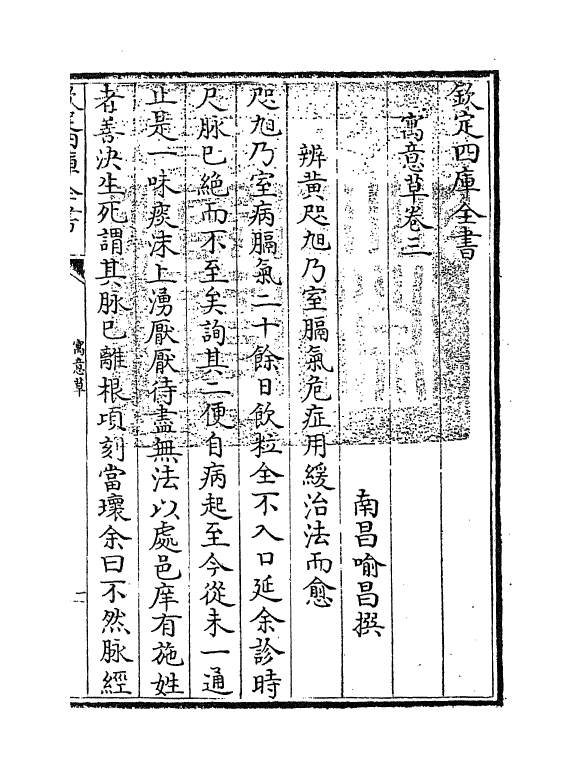 欽定四庫全書
寓意草卷三
南昌喻昌撰
辨黃咫旭乃室膈氣危症用緩治法而愈
咫旭乃室病膈氣二十餘日飲粒全不入口延余診時
尺脉已絶而不至矣詢其二便自病起至今從未一通
止是一味痰沫上湧厭厭待盡無法以處邑庠有施姓
者善決生死謂其脉已離根項刻當壞余曰不然脉經
欽定四庫全書
寓意草